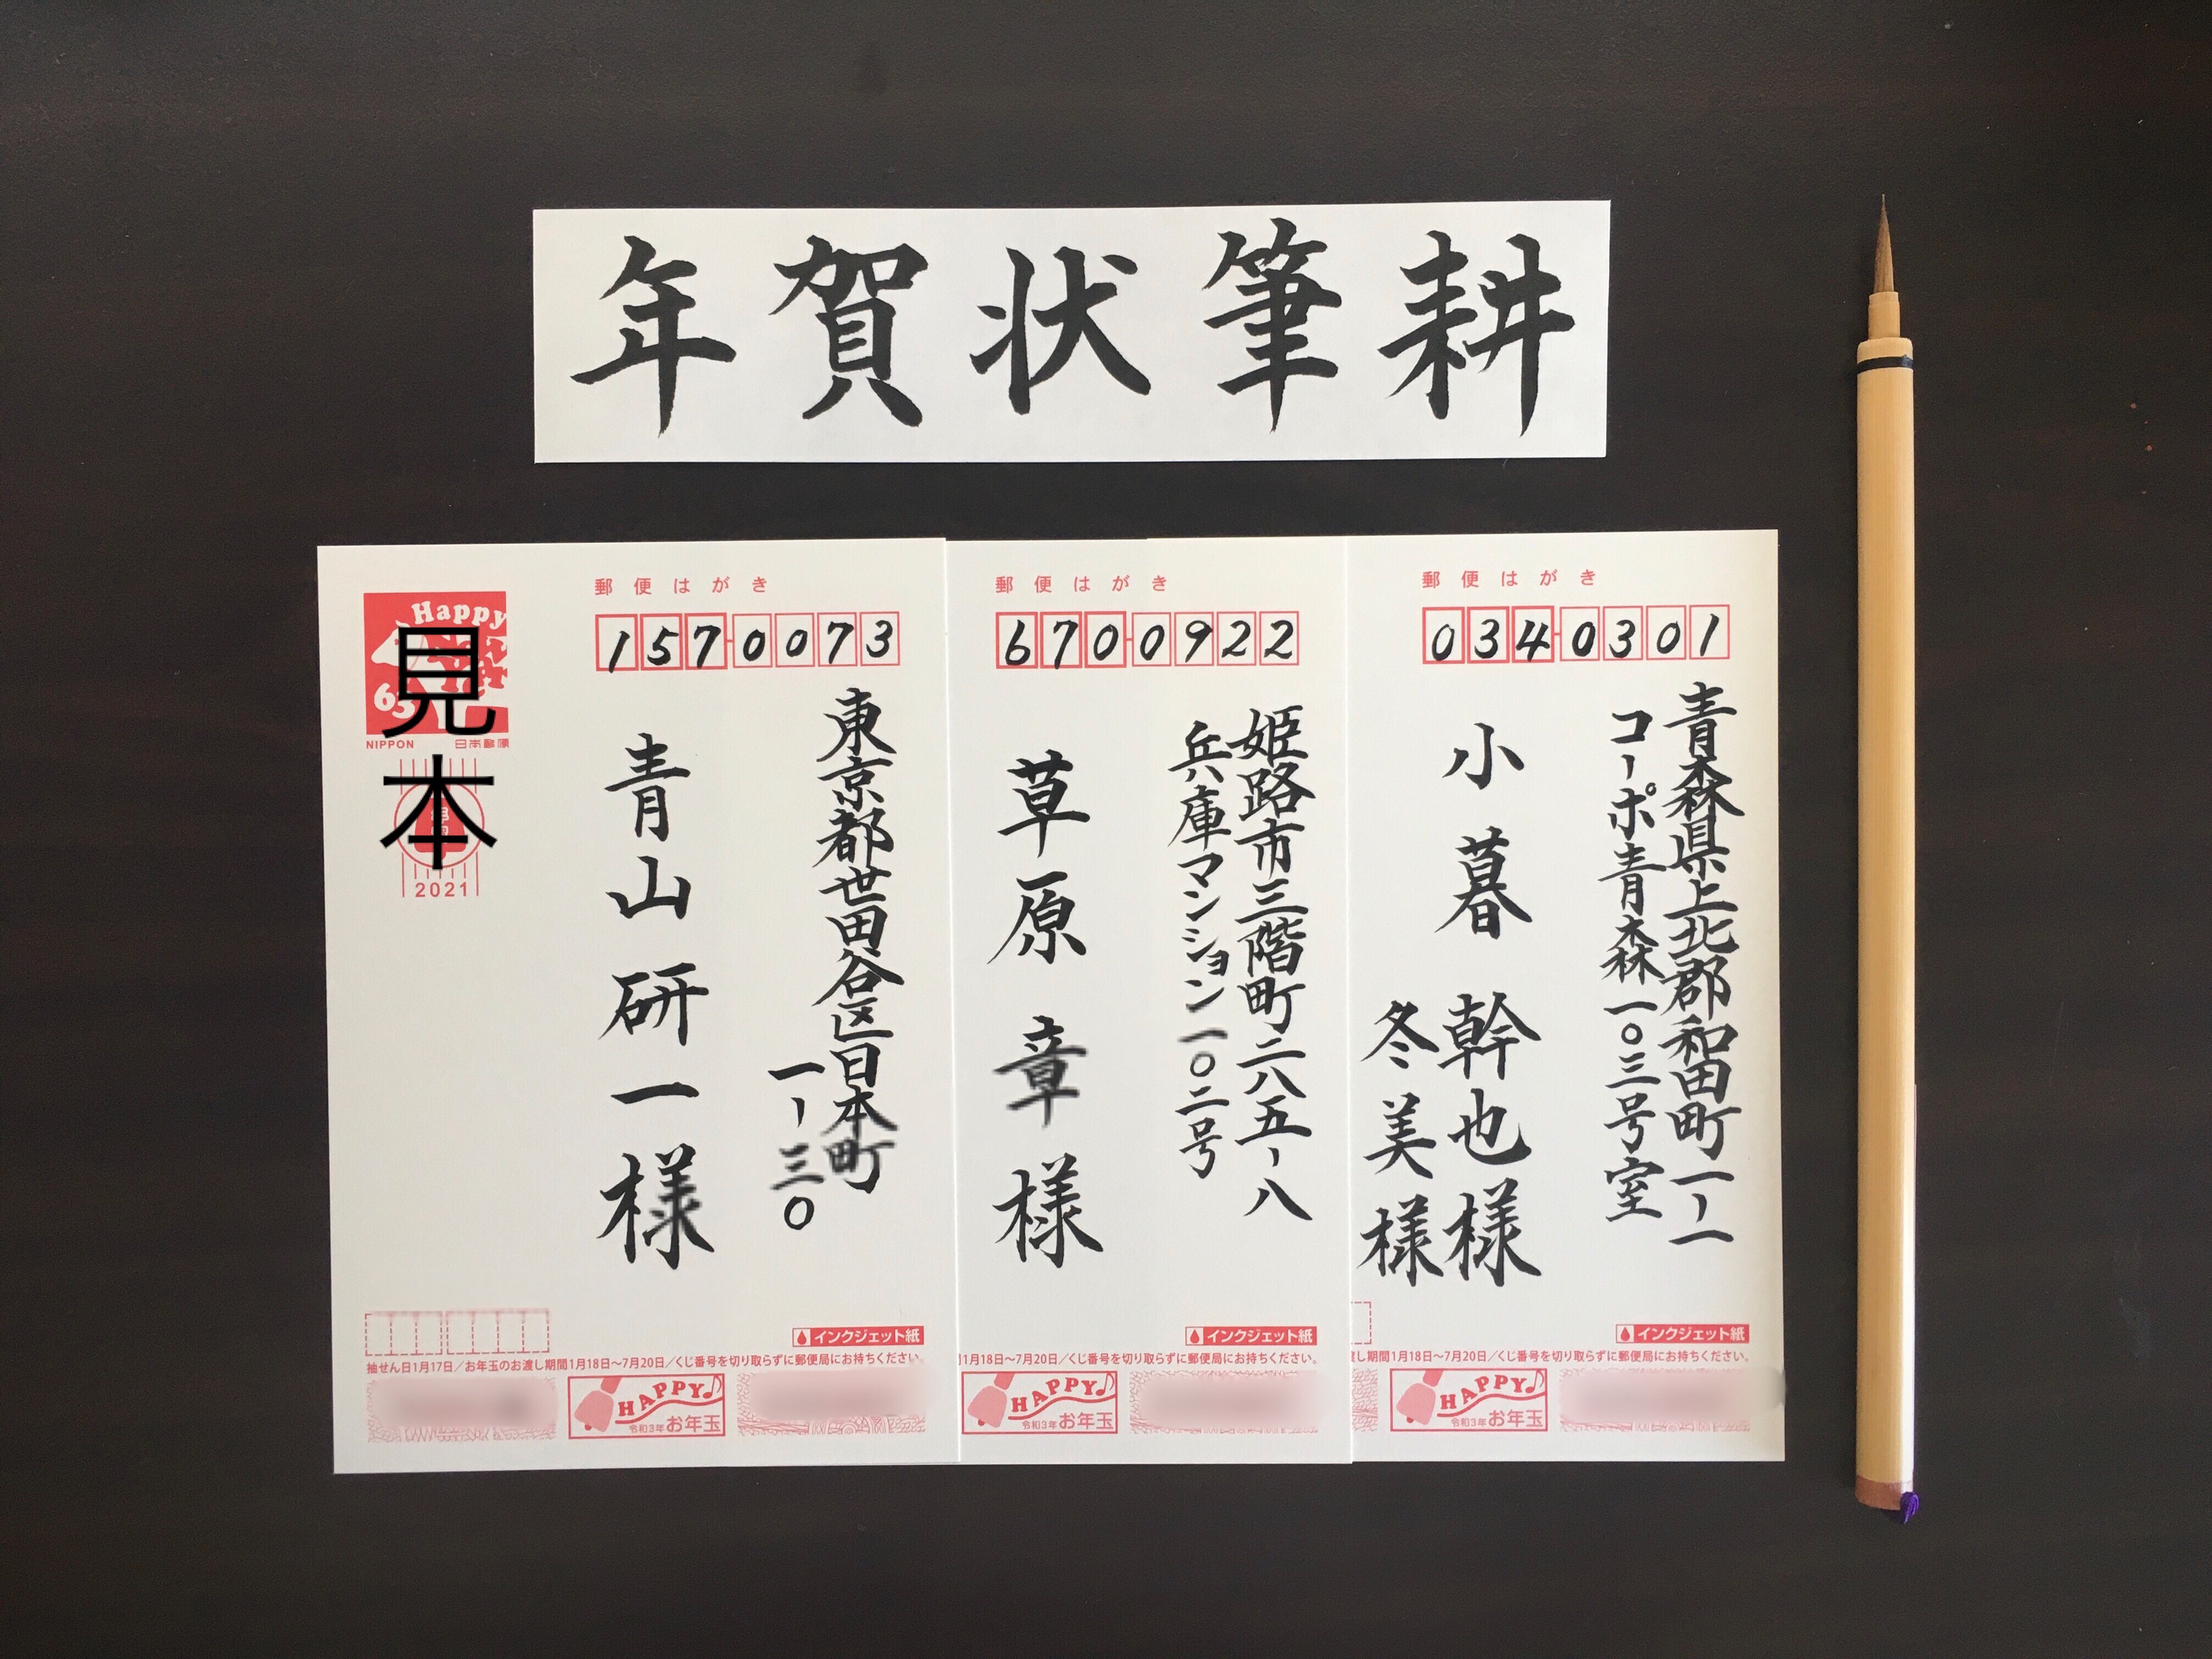 年賀状筆耕
郵便はがき
157-0073
東京都世田谷区日本町
一-三〇
青山研一様
Happy
63
NIPPON 日本郵便
見本
2021
インクジェット紙
抽せん日1月17日/お年玉のお渡し期間1月18日~7月20日/くじ番号を切り取らずに郵便局にお持ちください。
HAPPY♪
令和3年お年玉
郵便はがき
670-0922
姫路市三階町二八五-八
兵庫マンション一〇二号
草原章様
インクジェット紙
1月18日~7月20日/くじ番号を切り取らずに郵便局にお持ちください。
HAPPY♪
令和3年お年玉
郵便はがき
034-0301
青森県上北郡和田町一-一
コーポ青森一〇三号室
小暮幹也様
冬美様
インクジェット紙
渡し期間1月18日~7月20日/くじ番号を切り取らずに郵便局にお持ちください。
HAPPY♪
令和3年お年玉